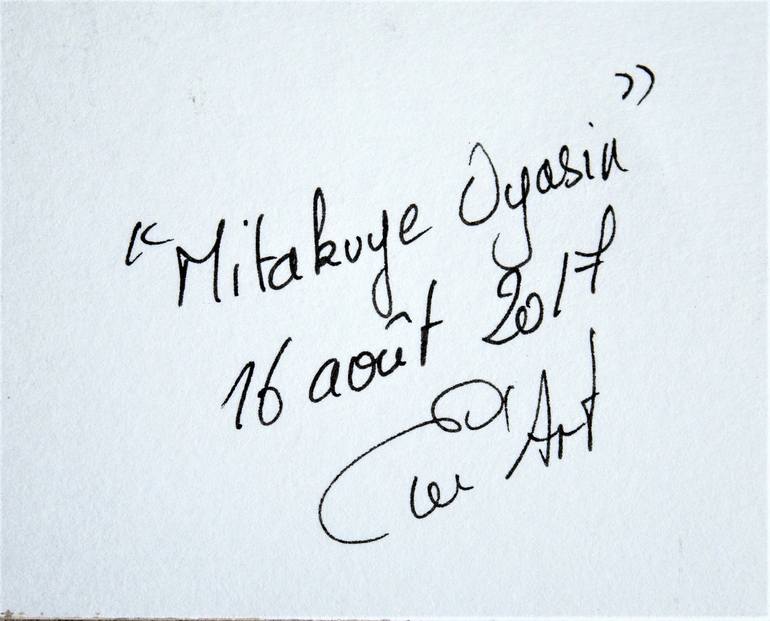 « Mitakuye Oyasin »
16 août 2017
Art